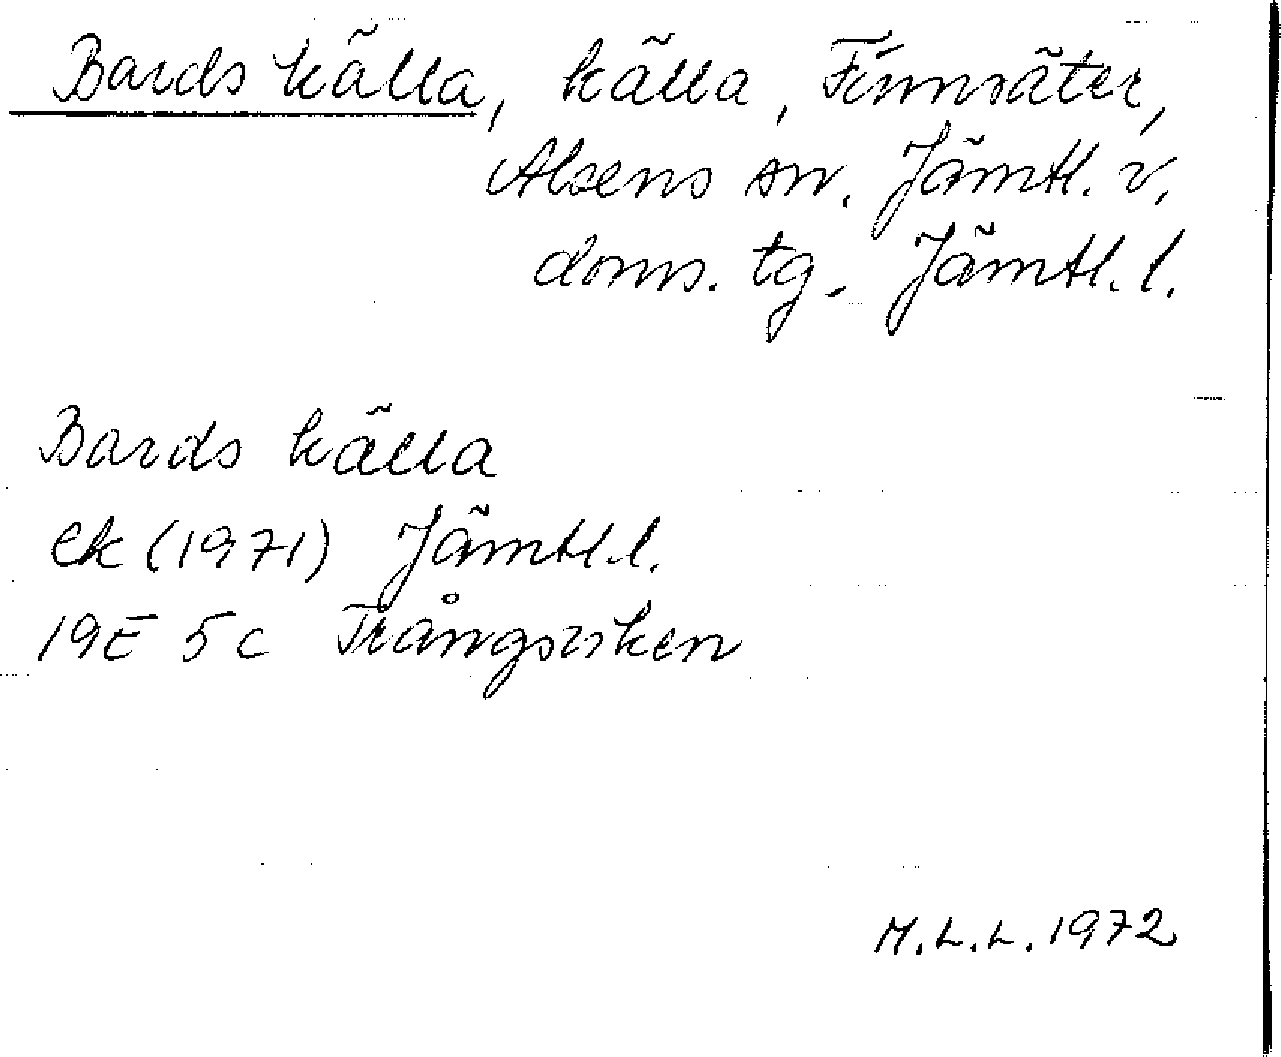 Bards källa, källa, Finnsäter,
Alsens sn. Jämtl. v.
doms. tg. Jämtl. l.
Bards källa
Ek (1971) Jämtl.l.
19E 5c Trångsviken
M.L.L. 1972